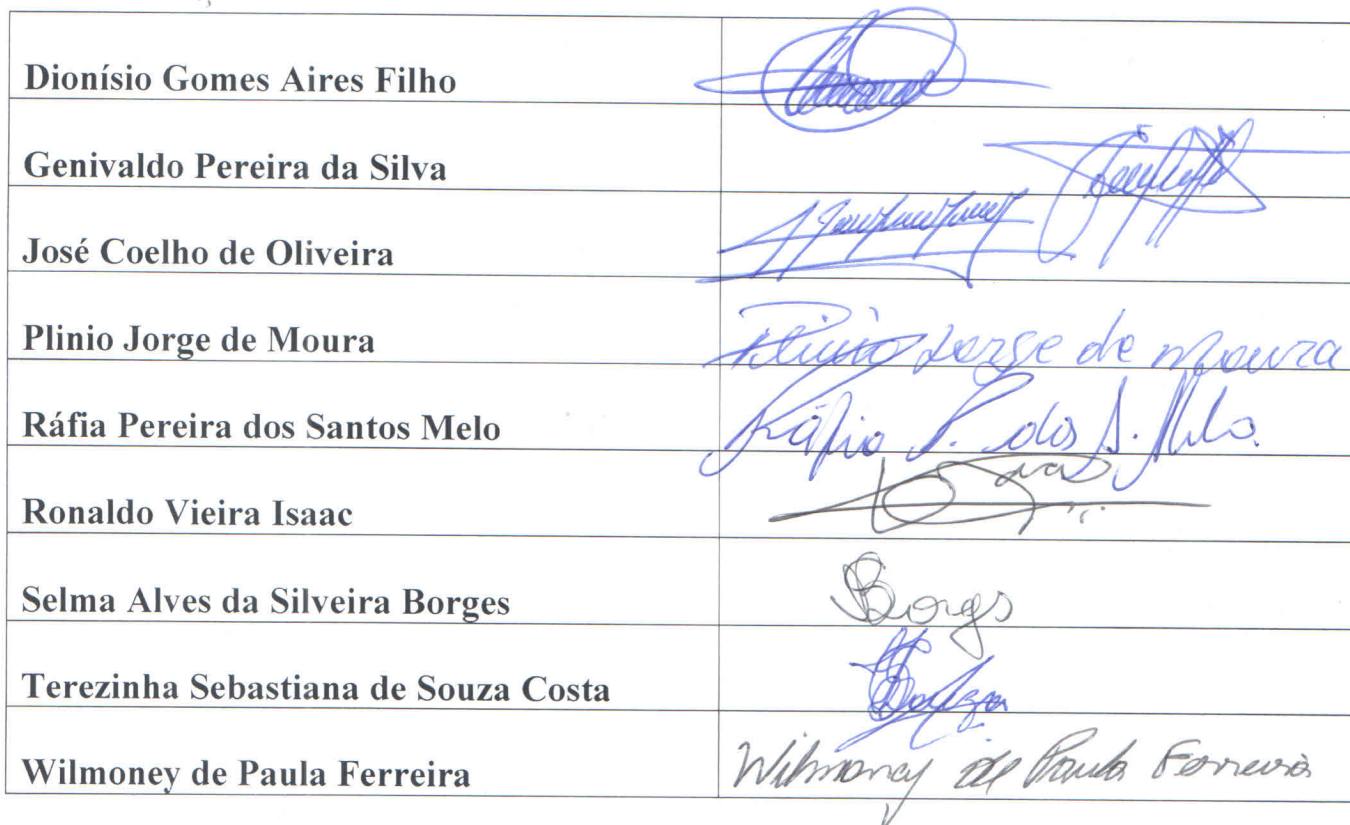 Dionísio Gomes Aires Filho
Genivaldo Pereira da Silva
José Coelho de Oliveira
Plinio Jorge de Moura Plinio Jorge de Moura
Ráfia Pereira dos Santos Melo Ráfia P. dos S. Melo
Ronaldo Vieira Isaac
Selma Alves da Silveira Borges SBorges
Terezinha Sebastiana de Souza Costa
Wilmoney de Paula Ferreira Wilmoney de Paula Ferreira